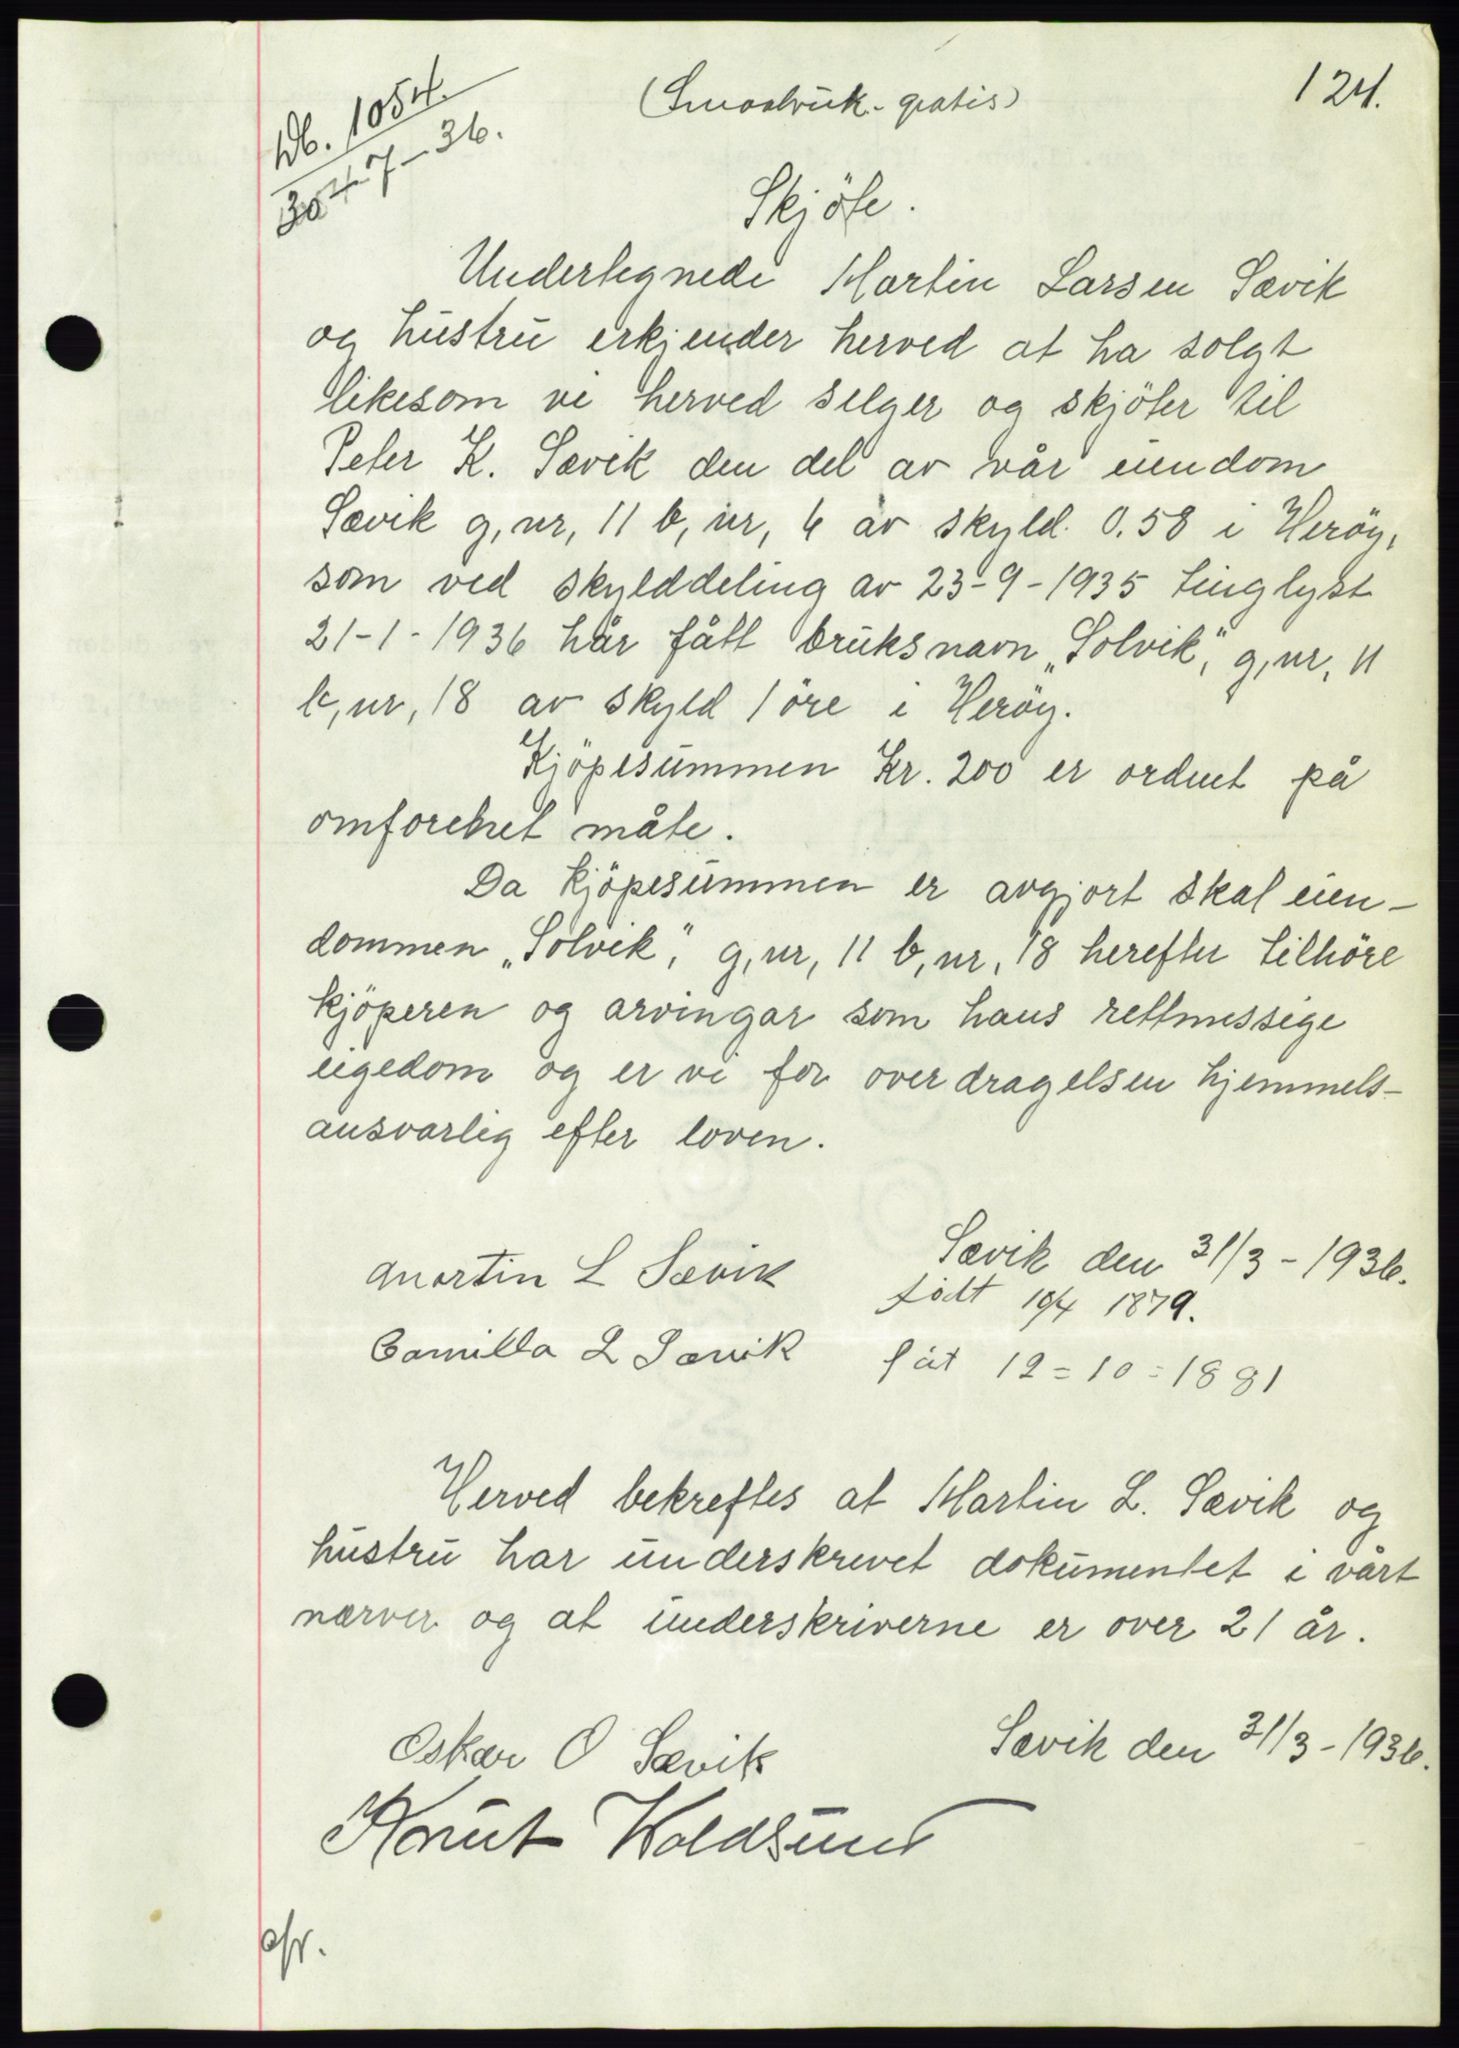 124.
Db. 1054.
30-7-36.
(Smaabruk - gratis)
Skjöte.
Undertegnede Martin Larsen Sævik
og hustru erkjender herved at ha solgt
likesom vi herved selger og skjöter til
Peter K. Sævik den del av vår eiendom
Sævik g, nr, 11 b, nr, 6 av skyld 0.58 i Heröy,
som ved skylddeling av 23-9-1935 tinglyst
21-1-1936 har fått bruksnavn „Solvik“, g, nr, 11
b, nr, 18 av skyld 1 öre i Heröy.
Kjöpesummen Kr. 200 er ordnet på
omforenet måte.
Da kjöpesummen er avgjort skal eien-
dommen „Solvik“, g, nr, 11 b, nr, 18 herefter tilhöre
kjöperen og arvingar som hans rettmessige
eigedom og er vi for overdragelsen hjemmels-
ansvarlig efter loven.
Sævik den 31/3-1936.
Martin L Sævik født 10/4 1879.
Camilla L Sævik fåt 12=10=1881
Herved bekreftes at Martin L. Sævik og
hustru har underskrevet dokumentet i vårt
nærver og at underskriverne er over 21 år.
Sævik den 31/3-1936.
Oskar O Sævik
Knut Woldsund